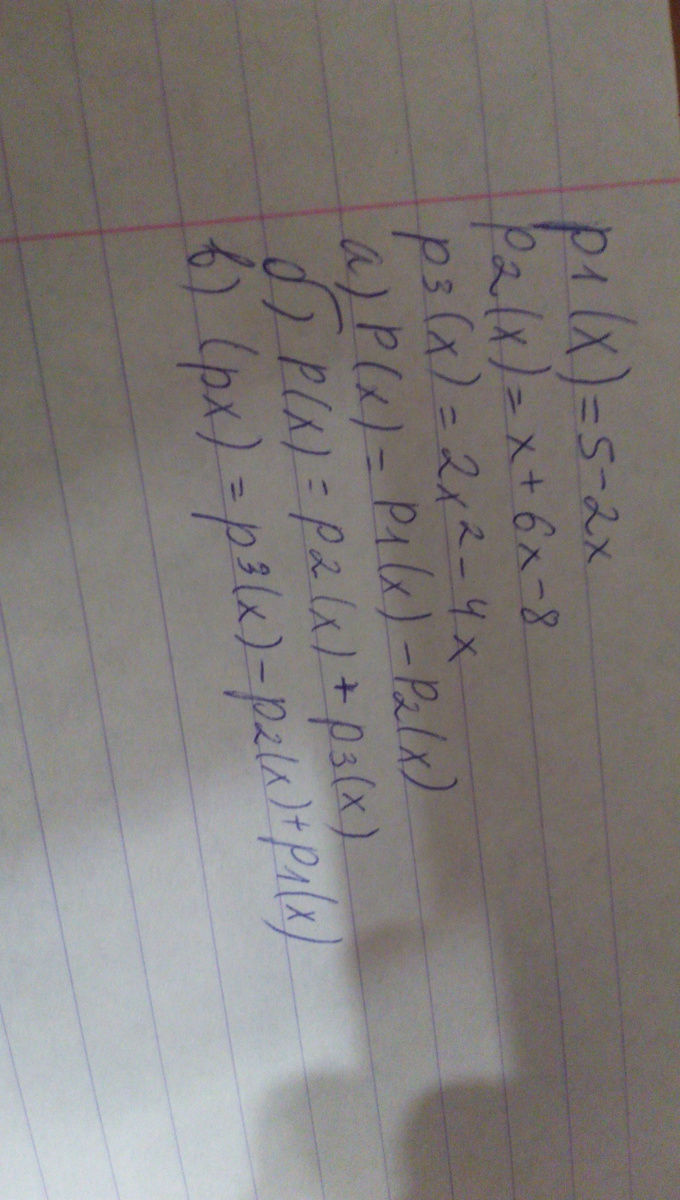 p1(x)=5-2x
p2(x)=x+6x-8
p3(x)=2x²-4x
а) p(x)=p1(x)-p2(x)
б) p(x)=p2(x)+p3(x)
в) (px)=p3(x)-p2(x)+p1(x)